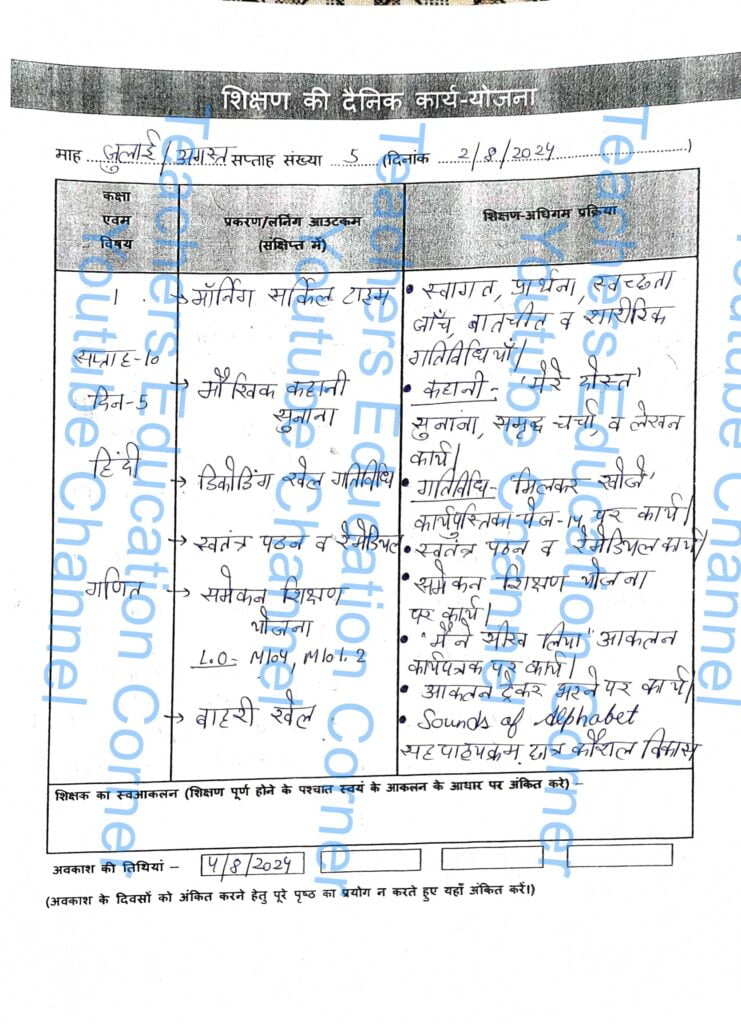 शिक्षण की दैनिक कार्य-योजना
माह जुलाई/अगस्त सप्ताह संख्या 5 (दिनांक 2/8/2024)
कक्षा
एवम
विषय
प्रकरण/लर्निंग आउटकम
(संक्षिप्त में)
शिक्षण-अधिगम प्रक्रिया
1
सप्ताह-10
दिन-5
हिंदी
गणित
→ मॉर्निंग सर्किल टाइम
→ मौखिक कहानी
सुनाना
→ डिकोडिंग खेल गतिविधि
→ स्वतंत्र पठन व रेमेडियल
→ समेकन शिक्षण
योजना
L.O- M104, M101.2
→ बाहरी खेल
• स्वागत, प्रार्थना, स्वच्छता
जाँच, बातचीत व शारीरिक
गतिविधियाँ।
• कहानी- 'मेरे दोस्त'
सुनाना, समृद्ध चर्चा, व लेखन
कार्य।
• गतिविधि- 'मिलकर खोजें'
कार्यपुस्तिका पेज-14 पर कार्य।
• स्वतंत्र पठन व रेमेडियल कार्य।
• समेकन शिक्षण योजना
पर कार्य।
• "मैंने सीख लिया" आकलन
कार्यपत्रक पर कार्य।
• आकलन ट्रेकर भरने पर कार्य।
• Sounds of Alphabet
सहपाठ्यक्रम छात्र कौशल विकास
शिक्षक का स्वआकलन (शिक्षण पूर्ण होने के पश्चात स्वयं के आकलन के आधार पर अंकित करे) –
अवकाश की तिथियां – 4/8/2024
(अवकाश के दिवसों को अंकित करने हेतु पूरे पृष्ठ का प्रयोग न करते हुए यहाँ अंकित करें।)
Teachers Education Corner
Youtube Channel
Teachers Education Corner
Youtube Channel
Teachers Education Corner
Youtube Channel
Youtube Channel